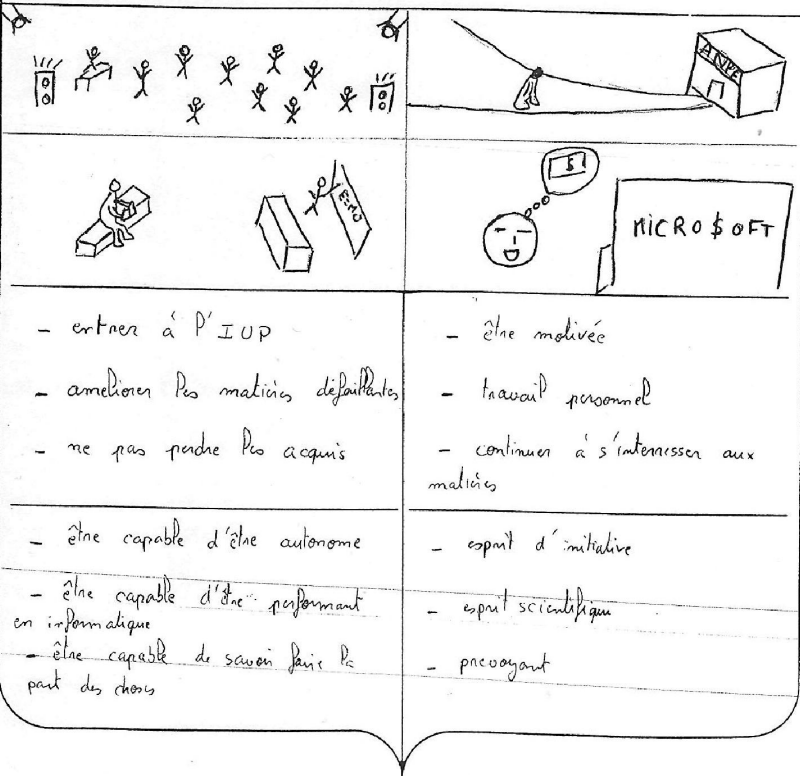 ANPE
ECMO
$
MICRO$OFT
- entrer à l'IUP
- améliorer les matières défaillantes
- ne pas perdre les acquis
- être motivée
- travail personnel
- continuer à s'interresser aux
matières
- être capable d'être autonome
- être capable d'être performant
en informatique
- être capable de savoir faire la
part des choses
- esprit d'initiative
- esprit scientifique
- prevoyant